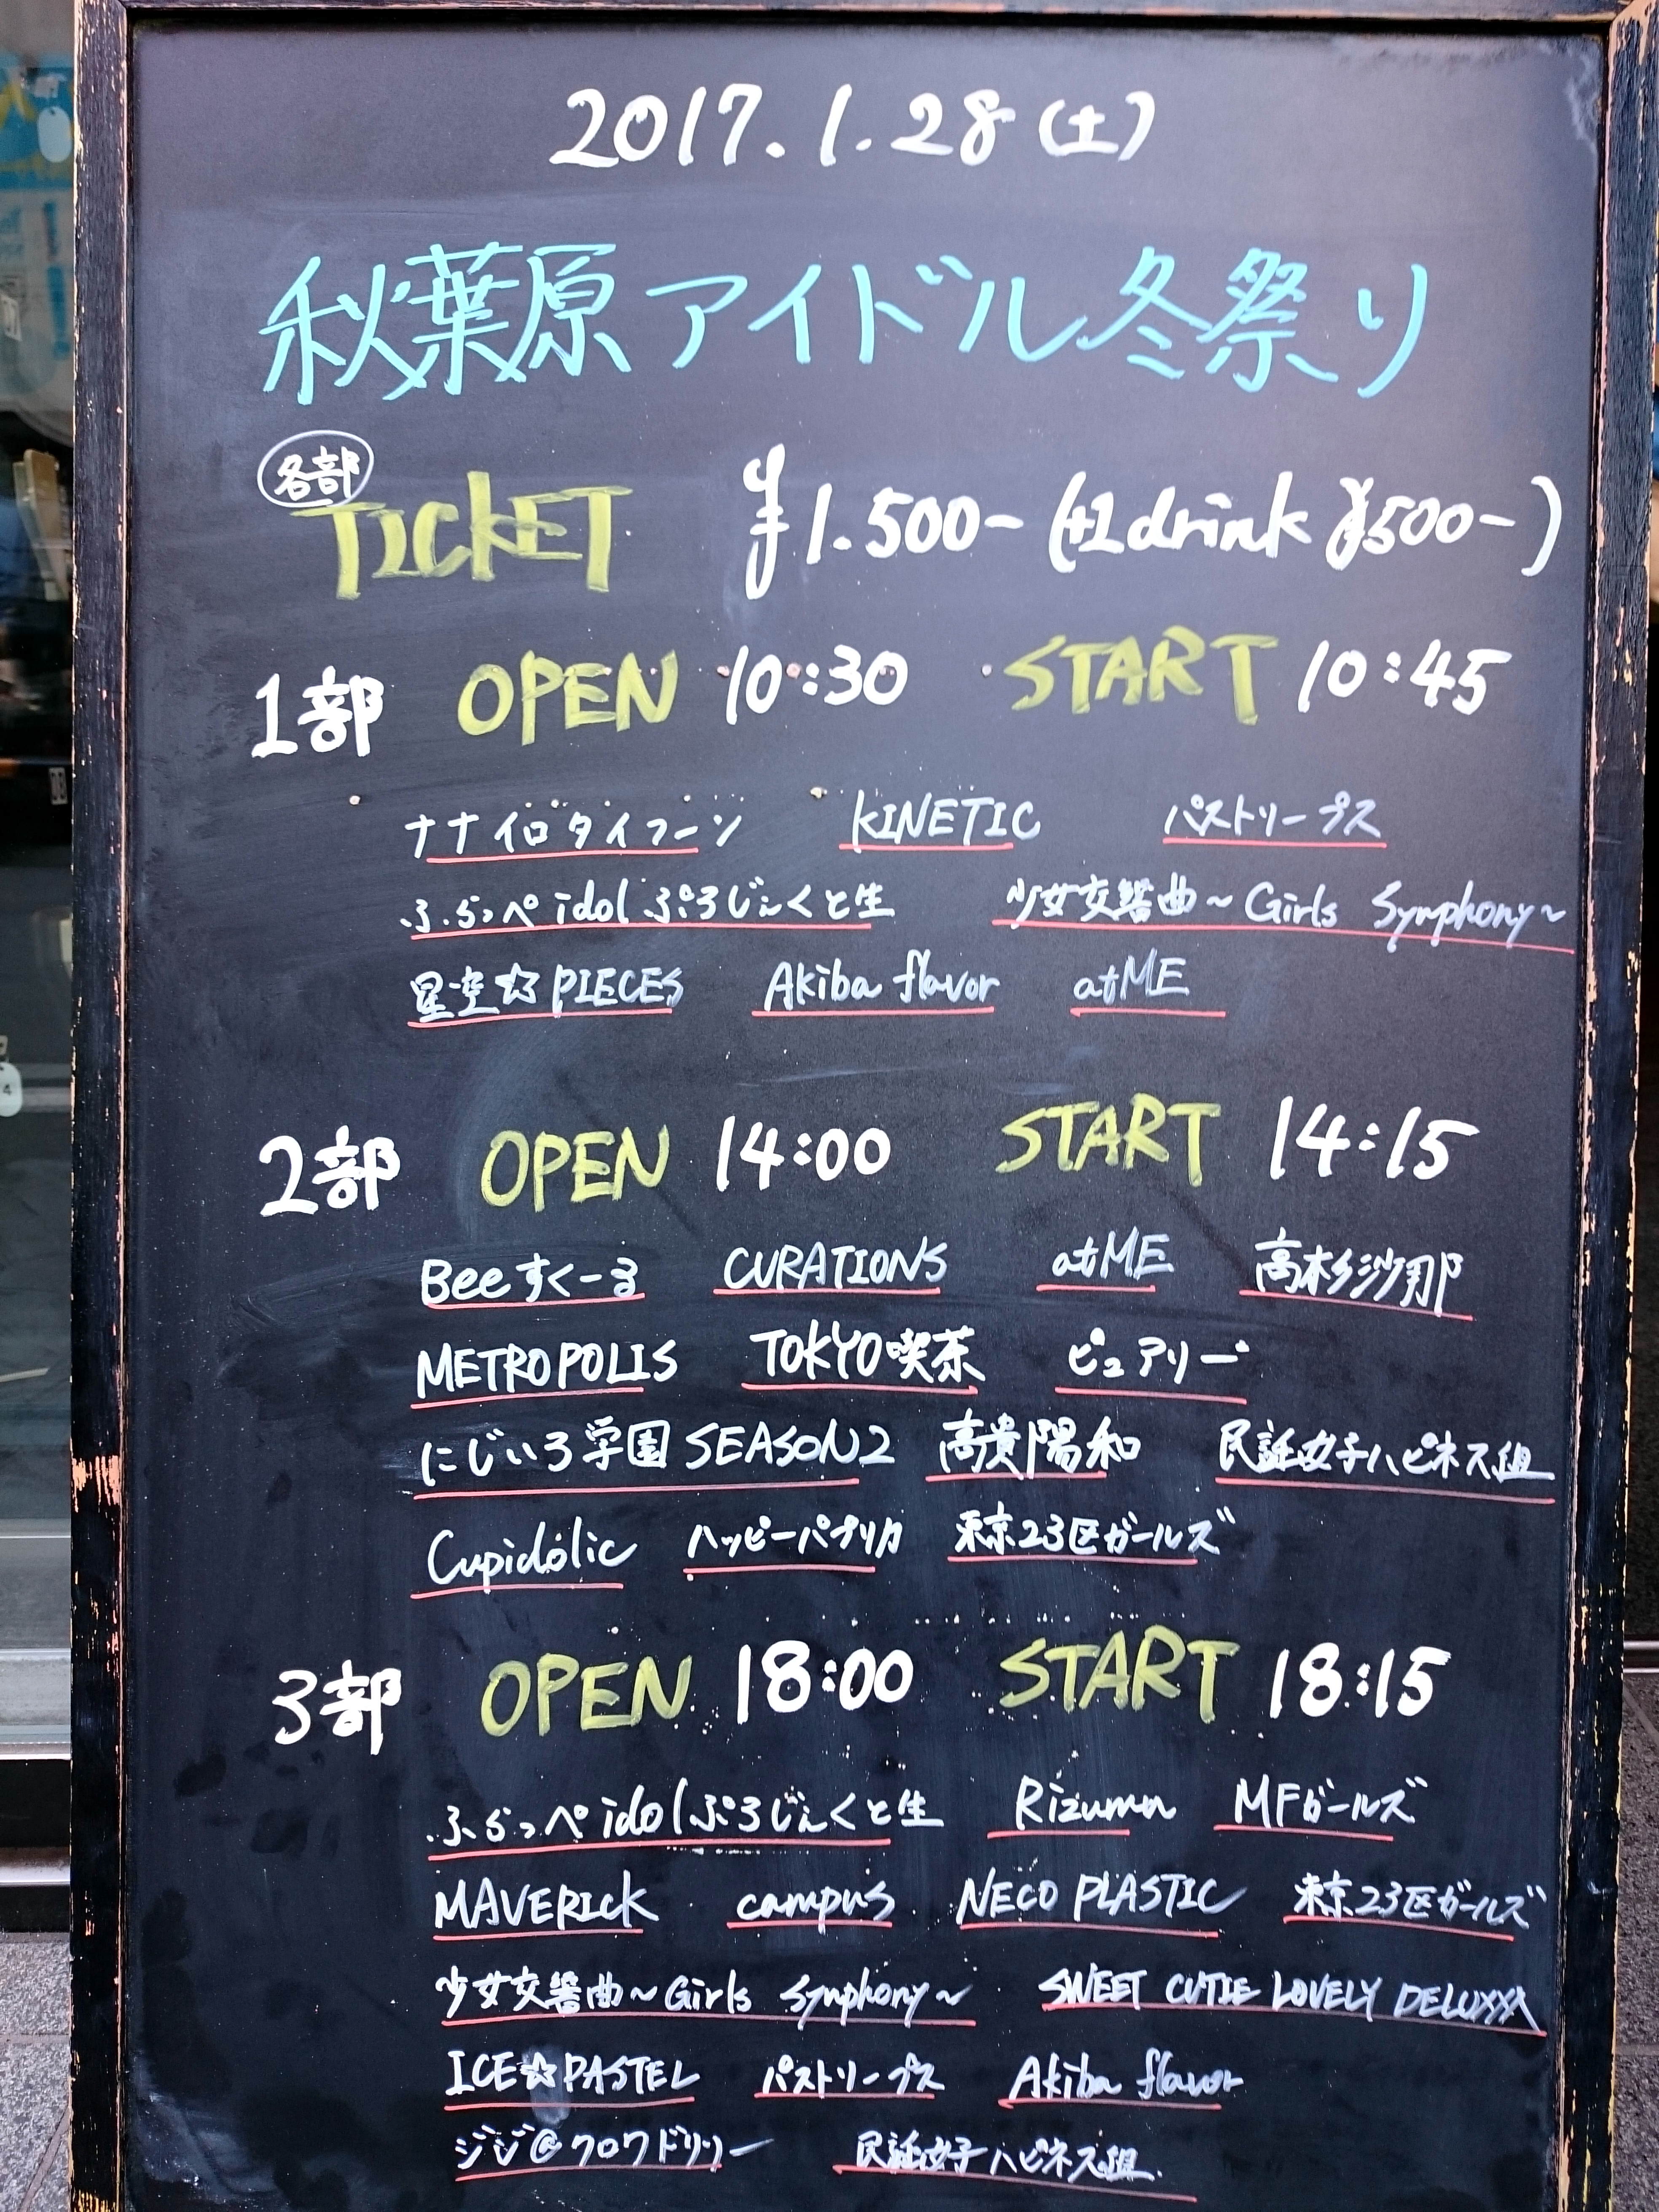 2017.1.28(土)
秋葉原アイドル冬祭り
各部
TICKET ¥1.500- (+1drink ¥500-)
1部 OPEN 10:30 START 10:45
ナナイロタイフーン KINETIC パストリープス
ふらっぺidolぷろじぇくと生 少女交響曲~Girls Symphony~
星空☆PIECES Akiba flavor atME
2部 OPEN 14:00 START 14:15
Beeすくーる CURATIONS atME 高杉沙那
METROPOLIS TOKYO喫茶 ピュアリー
にじいろ学園SEASON2 高貴陽和 民話女子ハピネス組
Cupidolic ハッピーパプリカ 東京23区ガールズ
3部 OPEN 18:00 START 18:15
ふらっぺidolぷろじぇくと生 Rizumu MFガールズ
MAVERICK campus NECO PLASTIC 東京23区ガールズ
少女交響曲~Girls Symphony~ SWEET CUTIE LOVELY DELUXXX
ICE☆PASTEL パストリープス Akiba flavor
民話女子ハピネス組